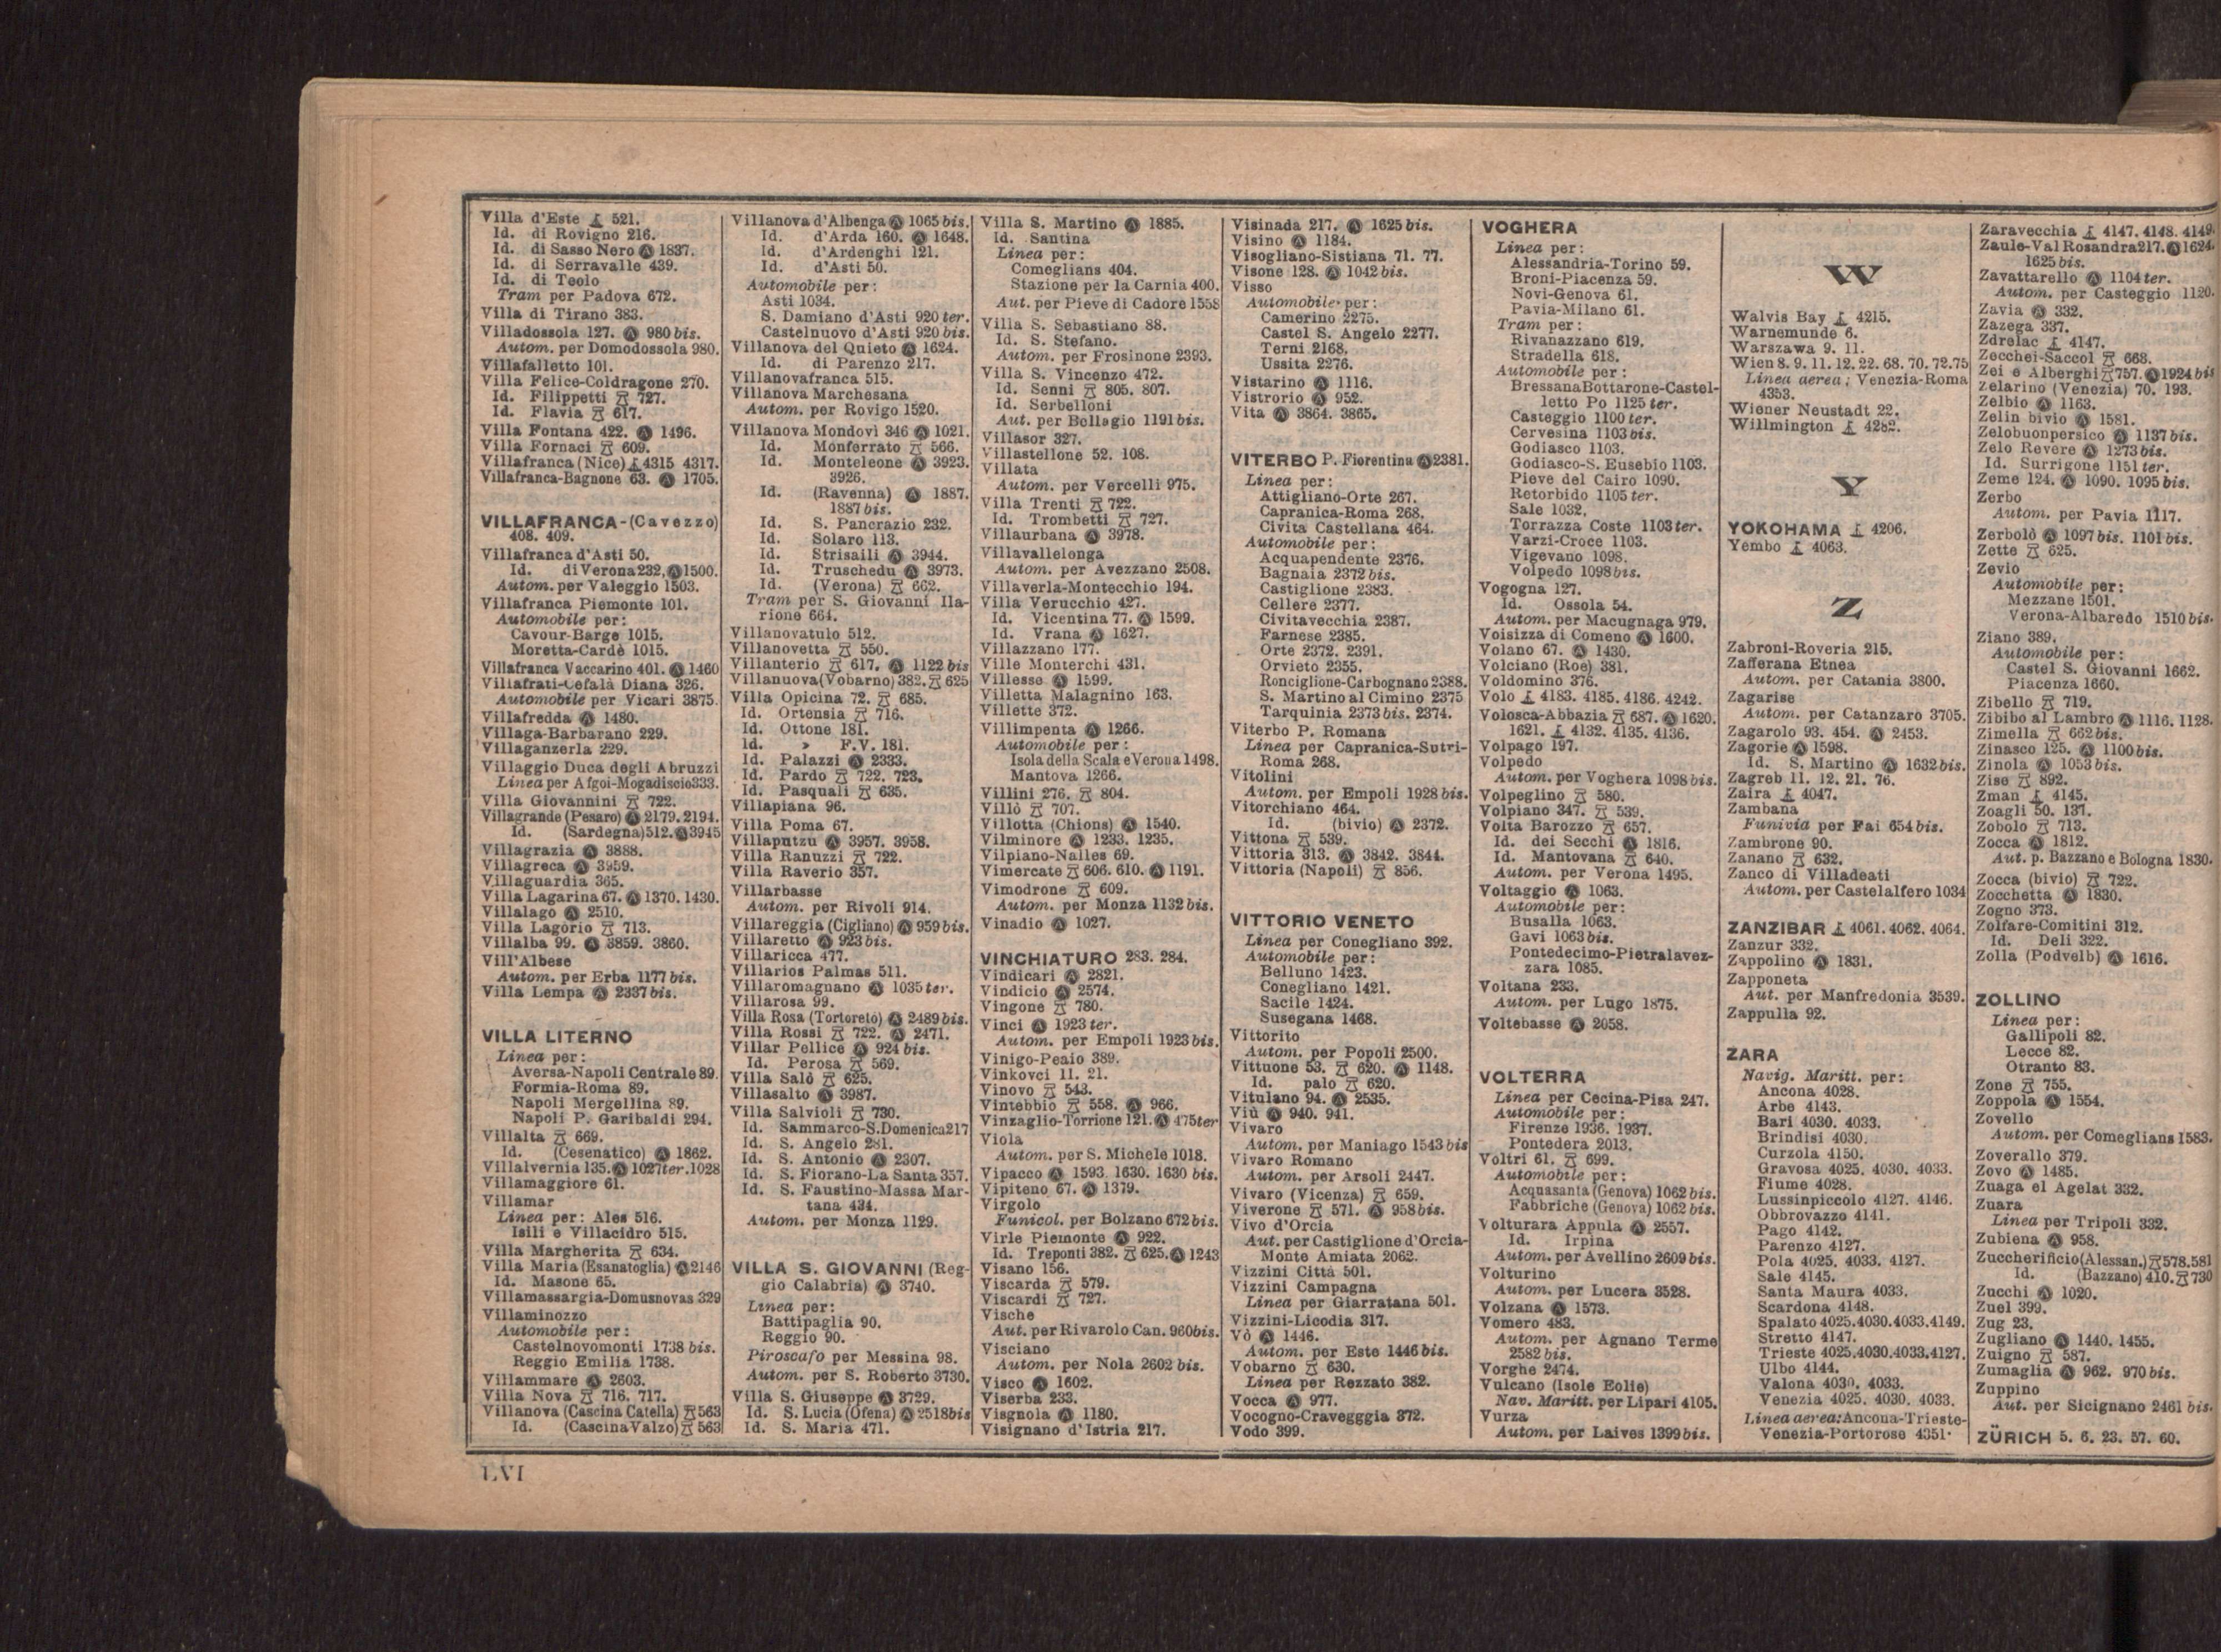 Villa d'Este 521.
Id. di Rovigno 216.
Id. di Sasso Nero Ⓐ 1837.
Id. di Serravalle 439.
Id. di Teolo
Tram per Padova 672.
Villa di Tirano 383.
Villadossola 127. Ⓐ 980 bis.
Autom. per Domodossola 980.
Villafalletto 101.
Villa Felice-Coldragone 270.
Id. Filippetti 727.
Id. Flavia 617.
Villa Fontana 422. Ⓐ 1496.
Villa Fornaci 609.
Villafranca (Nice) 4315 4317.
Villafranca-Bagnone 63. Ⓐ 1705.
VILLAFRANCA-(Cavezzo)
408. 409.
Villafranca d'Asti 50.
Id. di Verona 232. Ⓐ 1500.
Autom. per Valeggio 1503.
Villafranca Piemonte 101.
Automobile per:
Cavour-Barge 1015.
Moretta-Cardè 1015.
Villafranca Vaccarino 401. Ⓐ 1460
Villafrati-Cefalà Diana 326.
Automobile per Vicari 3875.
Villafredda Ⓐ 1480.
Villaga-Barbarano 229.
Villaganzerla 229.
Villaggio Duca degli Abruzzi
Linea per Afgoi-Mogadiscio 333.
Villa Giovannini 722.
Villagrande (Pesaro) Ⓐ 2179. 2194.
Id. (Sardegna) 512. Ⓐ 3945
Villagrazia Ⓐ 3888.
Villagreca Ⓐ 3959.
Villaguardia 365.
Villa Lagarina 67. Ⓐ 1370. 1430.
Villalago Ⓐ 2510.
Villa Lagorio 713.
Villalba 99. Ⓐ 3859. 3860.
Vill'Albese
Autom. per Erba 1177 bis.
Villa Lempa Ⓐ 2337 bis.
VILLA LITERNO
Linea per:
Aversa-Napoli Centrale 89.
Formia-Roma 89.
Napoli Mergellina 89.
Napoli P. Garibaldi 294.
Villalta 669.
Id. (Cesenatico) Ⓐ 1862.
Villalvernia 135. Ⓐ 1027 ter. 1028
Villamaggiore 61.
Villamar
Linea per: Ales 516.
Isili e Villacidro 515.
Villa Margherita 634.
Villa Maria (Esanatoglia) Ⓐ 2146
Id. Masone 65.
Villamassargia-Domusnovas 329
Villaminozzo
Automobile per:
Castelnovomonti 1738 bis.
Reggio Emilia 1738.
Villammare Ⓐ 2603.
Villa Nova 716. 717.
Villanova (Cascina Catella) 563
Id. (Cascina Valzo) 563
Villanova d'Albenga Ⓐ 1065 bis.
Id. d'Arda 160. Ⓐ 1648.
Id. d'Ardenghi 121.
Id. d'Asti 50.
Automobile per:
Asti 1034.
S. Damiano d'Asti 920 ter.
Castelnuovo d'Asti 920 bis.
Villanova del Quieto Ⓐ 1624.
Id. di Parenzo 217.
Villanovafranca 515.
Villanova Marchesana
Autom. per Rovigo 1520.
Villanova Mondovì 346 Ⓐ 1021.
Id. Monferrato 566.
Id. Monteleone Ⓐ 3923.
3926.
Id. (Ravenna) Ⓐ 1887.
1887 bis.
Id. S. Pancrazio 232.
Id. Solaro 113.
Id. Strisaili Ⓐ 3944.
Id. Truschedu Ⓐ 3973.
Id. (Verona) 662.
Tram per S. Giovanni Ila-
rione 664.
Villanovatulo 512.
Villanovetta 550.
Villanterio 617. Ⓐ 1122 bis
Villanuova (Vobarno) 382. 625
Villa Opicina 72. 685.
Id. Ortensia 716.
Id. Ottone 181.
Id. » F.V. 181.
Id. Palazzi Ⓐ 2333.
Id. Pardo 722. 723.
Id. Pasquali 635.
Villapiana 96.
Villa Poma 67.
Villaputzu Ⓐ 3957. 3958.
Villa Ranuzzi 722.
Villa Raverio 357.
Villarbasse
Autom. per Rivoli 914.
Villareggia (Cigliano) Ⓐ 959 bis.
Villaretto Ⓐ 923 bis.
Villaricca 477.
Villarios Palmas 511.
Villaromagnano Ⓐ 1035 ter.
Villarosa 99.
Villa Rosa (Tortoreto) Ⓐ 2489 bis.
Villa Rossi 722. Ⓐ 2471.
Villar Pellice Ⓐ 924 bis.
Id. Perosa 569.
Villa Salò 625.
Villasalto Ⓐ 3987.
Villa Salvioli 730.
Id. Sammarco-S.Domenica 217
Id. S. Angelo 281.
Id. S. Antonio Ⓐ 2307.
Id. S. Fiorano-La Santa 357.
Id. S. Faustino-Massa Mar-
tana 434.
Autom. per Monza 1129.
VILLA S. GIOVANNI (Reg-
gio Calabria) Ⓐ 3740.
Linea per:
Battipaglia 90.
Reggio 90.
Piroscafo per Messina 98.
Autom. per S. Roberto 3730.
Villa S. Giuseppe Ⓐ 3729.
Id. S. Lucia (Ofena) Ⓐ 2518 bis
Id. S. Maria 471.
Villa S. Martino Ⓐ 1885.
Id. Santina
Linea per:
Comeglians 404.
Stazione per la Carnia 400.
Aut. per Pieve di Cadore 1558
Villa S. Sebastiano 88.
Id. S. Stefano.
Autom. per Frosinone 2393.
Villa S. Vincenzo 472.
Id. Senni 805. 807.
Id. Serbelloni
Aut. per Bellagio 1191 bis.
Villasor 327.
Villastellone 52. 108.
Villata
Autom. per Vercelli 975.
Villa Trenti 722.
Id. Trombetti 727.
Villaurbana Ⓐ 3978.
Villavallelonga
Autom. per Avezzano 2508.
Villaverla-Montecchio 194.
Villa Verucchio 427.
Id. Vicentina 77. Ⓐ 1599.
Id. Vrana Ⓐ 1627.
Villazzano 177.
Ville Monterchi 431.
Villesse Ⓐ 1599.
Villetta Malagnino 163.
Villette 372.
Villimpenta Ⓐ 1266.
Automobile per:
Isola della Scala e Verona 1498.
Mantova 1266.
Villini 276. 804.
Villò 707.
Villotta (Chions) Ⓐ 1540.
Vilminore Ⓐ 1233. 1235.
Vilpiano-Nalles 69.
Vimercate 606. 610. Ⓐ 1191.
Vimodrone 609.
Autom. per Monza 1132 bis.
Vinadio Ⓐ 1027.
VINCHIATURO 283. 284.
Vindicari Ⓐ 2821.
Vindicio Ⓐ 2574.
Vingone 780.
Vinci Ⓐ 1923 ter.
Autom. per Empoli 1923 bis.
Vinigo-Peaio 389.
Vinkovci 11. 21.
Vinovo 543.
Vintebbio 558. Ⓐ 966.
Vinzaglio-Torrione 121. Ⓐ 475 ter
Viola
Autom. per S. Michele 1018.
Vipacco Ⓐ 1593. 1630. 1630 bis.
Vipiteno 67. Ⓐ 1379.
Virgolo
Funicol. per Bolzano 672 bis.
Virle Piemonte Ⓐ 922.
Id. Treponti 382. 625. Ⓐ 1243
Visano 156.
Viscarda 579.
Viscardi 727.
Vische
Aut. per Rivarolo Can. 960 bis.
Visciano
Autom. per Nola 2602 bis.
Visco Ⓐ 1602.
Viserba 233.
Visgnola Ⓐ 1180.
Visignano d'Istria 217.
Visinada 217. Ⓐ 1625 bis.
Visino Ⓐ 1184.
Visogliano-Sistiana 71. 77.
Visone 128. Ⓐ 1042 bis.
Visso
Automobile per:
Camerino 2275.
Castel S. Angelo 2277.
Terni 2168.
Ussita 2276.
Vistarino Ⓐ 1116.
Vistrorio Ⓐ 952.
Vita Ⓐ 3864. 3865.
VITERBO P. Fiorentina Ⓐ 2381.
Linea per:
Attigliano-Orte 267.
Capranica-Roma 268.
Civita Castellana 464.
Automobile per:
Acquapendente 2376.
Bagnaia 2372 bis.
Castiglione 2383.
Cellere 2377.
Civitavecchia 2387.
Farnese 2385.
Orte 2372. 2391.
Orvieto 2355.
Ronciglione-Carbognano 2388.
S. Martino al Cimino 2375
Tarquinia 2373 bis. 2374.
Viterbo P. Romana
Linea per Capranica-Sutri-
Roma 268.
Vitolini
Autom. per Empoli 1928 bis.
Vitorchiano 464.
Id. (bivio) Ⓐ 2372.
Vittona 539.
Vittoria 313. Ⓐ 3842. 3844.
Vittoria (Napoli) 856.
VITTORIO VENETO
Linea per Conegliano 392.
Automobile per:
Belluno 1423.
Conegliano 1421.
Sacile 1424.
Susegana 1468.
Vittorito
Autom. per Popoli 2500.
Vittuone 53. 620. Ⓐ 1148.
Id. palo 620.
Vitulano 94. Ⓐ 2535.
Viù Ⓐ 940. 941.
Vivaro
Autom. per Maniago 1543 bis
Vivaro Romano
Autom. per Arsoli 2447.
Vivaro (Vicenza) 659.
Viverone 571. Ⓐ 958 bis.
Vivo d'Orcia
Aut. per Castiglione d'Orcia-
Monte Amiata 2062.
Vizzini Città 501.
Vizzini Campagna
Linea per Giarratana 501.
Vizzini-Licodia 317.
Vò Ⓐ 1446.
Autom. per Este 1446 bis.
Vobarno 630.
Linea per Rezzato 382.
Vocca Ⓐ 977.
Vocogno-Cravegggia 372.
Vodo 399.
VOGHERA
Linea per:
Alessandria-Torino 59.
Broni-Piacenza 59.
Novi-Genova 61.
Pavia-Milano 61.
Tram per:
Rivanazzano 619.
Stradella 618.
Automobile per:
Bressana Bottarone-Castel-
letto Po 1125 ter.
Casteggio 1100 ter.
Cervesina 1103 bis.
Godiasco 1103.
Godiasco-S. Eusebio 1103.
Pieve del Cairo 1090.
Retorbido 1105 ter.
Sale 1032.
Torrazza Coste 1103 ter.
Varzi-Croce 1103.
Vigevano 1098.
Volpedo 1098 bis.
Vogogna 127.
Id. Ossola 54.
Autom. per Macugnaga 979.
Voisizza di Comeno Ⓐ 1600.
Volano 67. Ⓐ 1430.
Volciano (Roe) 381.
Voldomino 376.
Volo 4183. 4185. 4186. 4242.
Volosca-Abbazia 687. Ⓐ 1620.
1621. 4132. 4135. 4136.
Volpago 197.
Volpedo
Autom. per Voghera 1098 bis.
Volpeglino 580.
Volpiano 347. 539.
Volta Barozzo 657.
Id. dei Secchi Ⓐ 1816.
Id. Mantovana 640.
Autom. per Verona 1495.
Voltaggio Ⓐ 1063.
Automobile per:
Busalla 1063.
Gavi 1063 bis.
Pontedecimo-Pietralavez-
zara 1085.
Voltana 233.
Autom. per Lugo 1875.
Voltebasse Ⓐ 2058.
VOLTERRA
Linea per Cecina-Pisa 247.
Automobile per:
Firenze 1936. 1937.
Pontedera 2013.
Voltri 61. 699.
Automobile per:
Acquasanta (Genova) 1062 bis.
Fabbriche (Genova) 1062 bis.
Volturara Appula Ⓐ 2557.
Id. Irpina
Autom. per Avellino 2609 bis.
Volturino
Autom. per Lucera 3528.
Volzana Ⓐ 1573.
Vomero 483.
Autom. per Agnano Terme
2582 bis.
Vorghe 2474.
Vulcano (Isole Eolie)
Nav. Maritt. per Lipari 4105.
Vurza
Autom. per Laives 1399 bis.
W
Walvis Bay 4215.
Warnemunde 6.
Warszawa 9. 11.
Wien 8. 9. 11. 12. 22. 68. 70. 72. 75
Linea aerea; Venezia-Roma
4353.
Wiener Neustadt 22.
Willmington 4282.
Y
YOKOHAMA 4206.
Yembo 4063.
Z
Zabroni-Roveria 215.
Zafferana Etnea
Autom. per Catania 3800.
Zagarise
Autom. per Catanzaro 3705.
Zagarolo 93. 454. Ⓐ 2453.
Zagorie Ⓐ 1598.
Id. S. Martino Ⓐ 1632 bis.
Zagreb 11. 12. 21. 76.
Zaira 4047.
Zambana
Funivia per Fai 654 bis.
Zambrone 90.
Zanano 632.
Zanco di Villadeati
Autom. per Castelalfero 1034
ZANZIBAR 4061. 4062. 4064.
Zanzur 332.
Zappolino Ⓐ 1831.
Zapponeta
Aut. per Manfredonia 3539.
Zappulla 92.
ZARA
Navig. Maritt. per:
Ancona 4028.
Arbe 4143.
Bari 4030. 4033.
Brindisi 4030.
Curzola 4150.
Gravosa 4025. 4030. 4033.
Fiume 4028.
Lussinpiccolo 4127. 4146.
Obbrovazzo 4141.
Pago 4142.
Parenzo 4127.
Pola 4025. 4033. 4127.
Sale 4145.
Santa Maura 4033.
Scardona 4148.
Spalato 4025. 4030. 4033. 4149.
Stretto 4147.
Trieste 4025. 4030. 4033. 4127.
Ulbo 4144.
Valona 4030. 4033.
Venezia 4025. 4030. 4033.
Linea aerea: Ancona-Trieste-
Venezia-Portorose 4351.
Zaravecchia 4147. 4148. 4149.
Zaule-Val Rosandra 217. Ⓐ 1624.
1625 bis.
Zavattarello Ⓐ 1104 ter.
Autom. per Casteggio 1120.
Zavia Ⓐ 332.
Zazega 337.
Zdrelac 4147.
Zecchei-Saccol 668.
Zei e Alberghi 757. Ⓐ 1924 bis
Zelarino (Venezia) 70. 193.
Zelbio Ⓐ 1163.
Zelin bivio Ⓐ 1581.
Zelobuonpersico Ⓐ 1137 bis.
Zelo Revere Ⓐ 1273 bis.
Id. Surrigone 1151 ter.
Zeme 124. Ⓐ 1090. 1095 bis.
Zerbo
Autom. per Pavia 1117.
Zerbolò Ⓐ 1097 bis. 1101 bis.
Zette 625.
Zevio
Automobile per:
Mezzane 1501.
Verona-Albaredo 1510 bis.
Ziano 389.
Automobile per:
Castel S. Giovanni 1662.
Piacenza 1660.
Zibello 719.
Zibibo al Lambro Ⓐ 1116. 1128.
Zimella 662 bis.
Zinasco 125. Ⓐ 1100 bis.
Zinola Ⓐ 1053 bis.
Zise 892.
Zman 4145.
Zoagli 50. 137.
Zobolo 713.
Zocca Ⓐ 1812.
Aut. p. Bazzano e Bologna 1830.
Zocca (bivio) 722.
Zocchetta Ⓐ 1830.
Zogno 373.
Zolfare-Comitini 312.
Id. Deli 322.
Zolla (Podvelb) Ⓐ 1616.
ZOLLINO
Linea per:
Gallipoli 82.
Lecce 82.
Otranto 83.
Zone 755.
Zoppola Ⓐ 1554.
Zovello
Autom. per Comeglians 1583.
Zoverallo 379.
Zovo Ⓐ 1485.
Zuaga el Agelat 332.
Zuara
Linea per Tripoli 332.
Zubiena Ⓐ 958.
Zuccherificio (Alessan.) 578. 581
Id. (Bazzano) 410. 730
Zucchi Ⓐ 1020.
Zuel 399.
Zug 23.
Zugliano Ⓐ 1440. 1455.
Zuigno 587.
Zumaglia Ⓐ 962. 970 bis.
Zuppino
Aut. per Sicignano 2461 bis.
ZÜRICH 5. 6. 23. 57. 60.
LVI